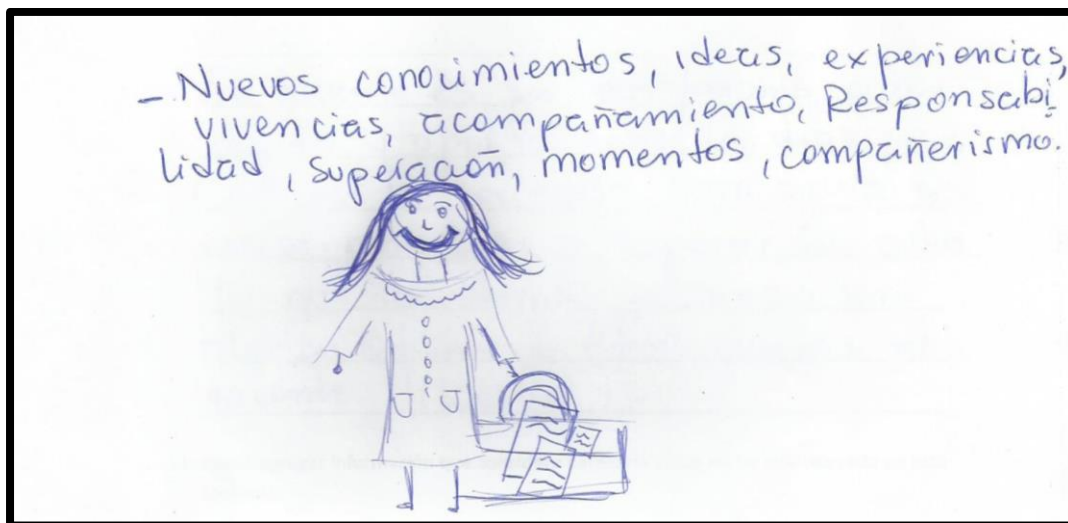 - Nuevos conocimientos, ideas, experiencias,
vivencias, acompañamiento, Responsabi_
lidad, superación, momentos, compañerismo.